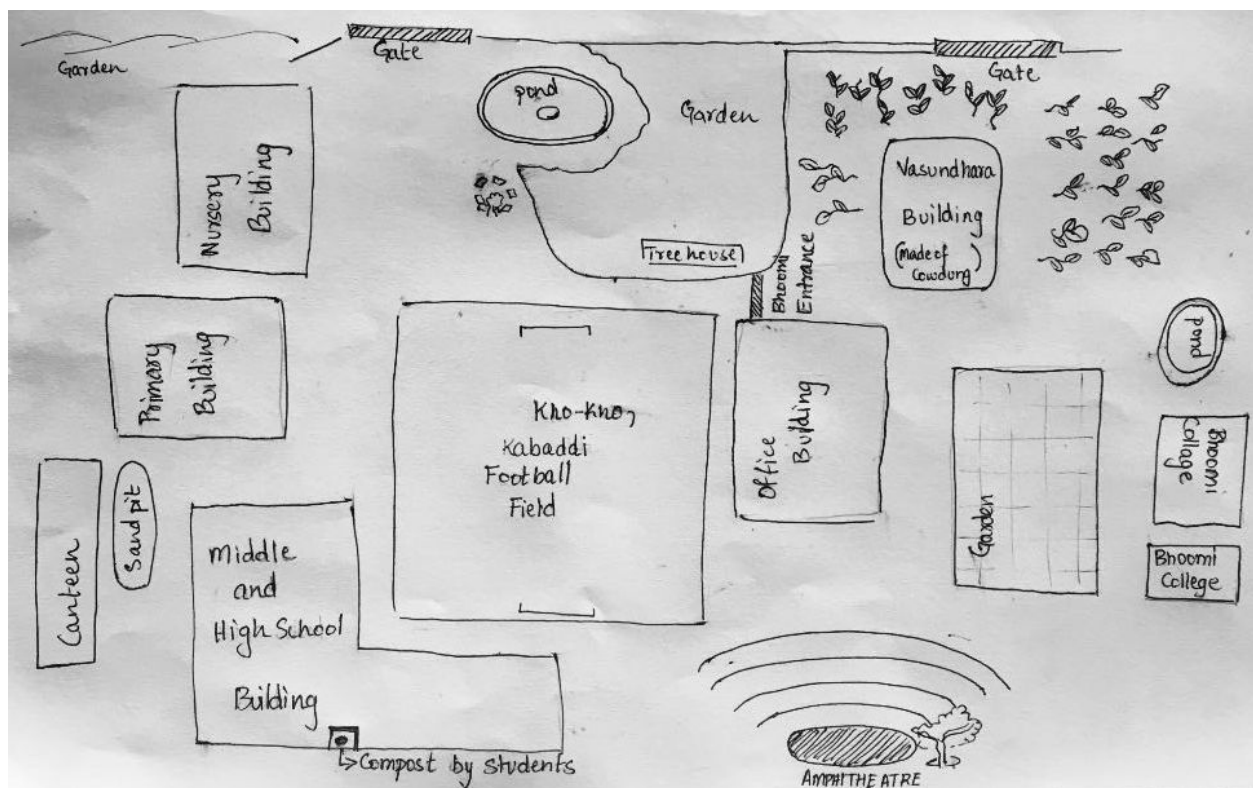 Garden
Gate
Gate
pond
Garden
Nursery
Building
Vasundhara
Building
(Made of
Cowdung)
Treehouse
Bhoomi
Entrance
pond
Primary
Building
Kho-Kho,
Kabaddi
Football
Field
Office
Building
Garden
Bhoomi
Collage
Bhoomi
College
Canteen
Sand pit
Middle
and
High School
Building
Compost by students
AMPHITHEATRE